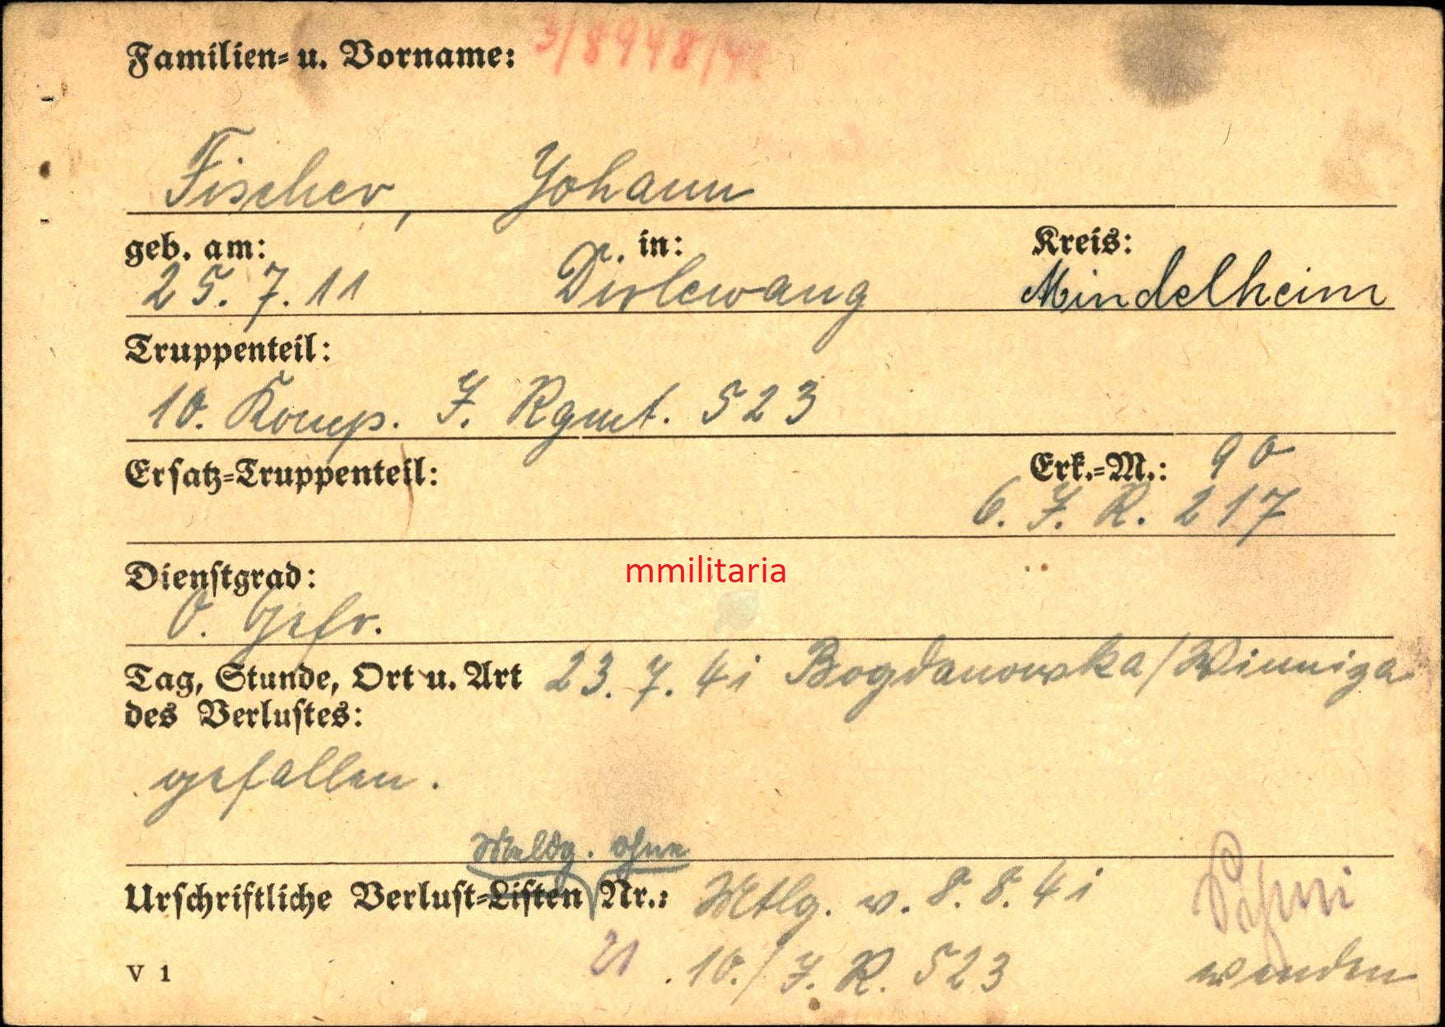 Familien= u. Vorname: 3/8948/41
Fischer, Johann
geb. am: in: Kreis:
25. 7. 11 Dirlewang Mindelheim
Truppenteil:
10. Komp. I. Rgmt. 523
Ersatz=Truppenteil: Erk.=M.: 90
6. I. R. 217
mmilitaria
Dienstgrad:
O. Gefr.
Tag, Stunde, Ort u. Art 23. 7. 41 Bogdanowska/Winniza
des Verlustes:
gefallen.
Meldg. ohne
Urschriftliche Verlust=Listen Nr.: Mtlg. v. 8. 8. 41
V 1 21 10./I. R. 523 wenden